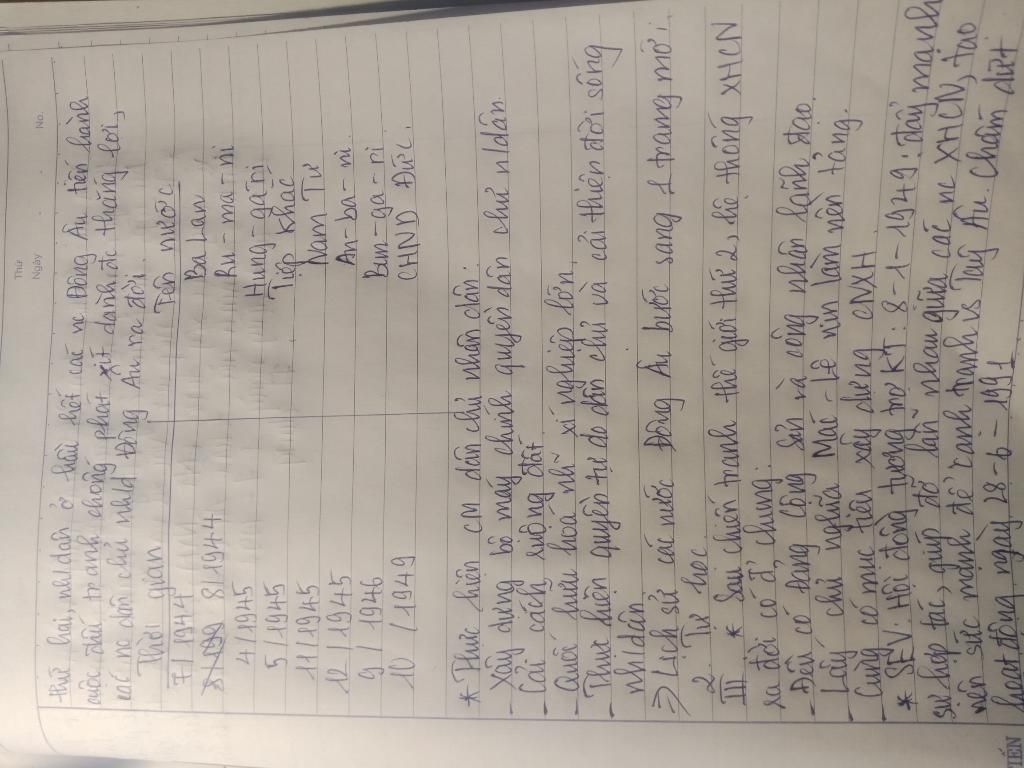 Thứ
Ngày
No.
thứ hai, nhdân ở hầu hết các nc Đông Âu tiến hành
cuộc đấu tranh chống phát xít dành đc thắng lợi,
các nc dân chủ nhdd Đông Âu ra đời.
Thời gian Tên nước
7/1944 Ba Lan
8/1944 Ru-ma-ni
4/1945 Hung-ga-ri
5/1945 Tiệp Khắc
11/1945 Nam Tư
12/1945 An-ba-ni
9/1946 Bun-ga-ri
10/1949 CHND Đức.
* Thực hiện CM dân chủ nhân dân:
- Xây dựng bộ máy chính quyền dân chủ nhdân.
- Cải cách ruộng đất
- Quốc hữu hoá nh xí nghiệp lớn.
- Thực hiện quyền tự do dân chủ và cải thiện đời sống
nhdân
=> Lịch sử các nước Đông Âu bước sang 1 trang mới.
2. Tự học
III * Sau chiến tranh thế giới thứ 2, hệ thống XHCN
ra đời có đ² chung:
- Đều có Đảng Cộng Sản và công nhân lãnh đạo.
- Lấy chủ nghĩa Mác-Lê nin làm nền tảng.
- Cùng có mục tiêu xây dựng CNXH
* SEV. Hội đồng tương trợ KT: 8-1-1949: đẩy mạnh
sự hợp tác, giúp đỡ lẫn nhau giữa các nc XHCN, tạo
nên sức mạnh để cạnh tranh vs Tây Âu. Chấm dứt
hoạt động ngày 28-6-1991
TIẾN